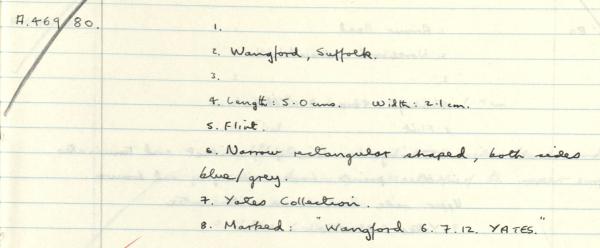 A.469/80.
1.
2. Wangford, Suffolk.
3.
4. Length: 5.0 cms. Width: 2.1 cm.
5. Flint.
6. Narrow rectangular shaped, both sides
blue/grey.
7. Yates Collection.
8. Marked: "Wangford 6. 7. 12. YATES."